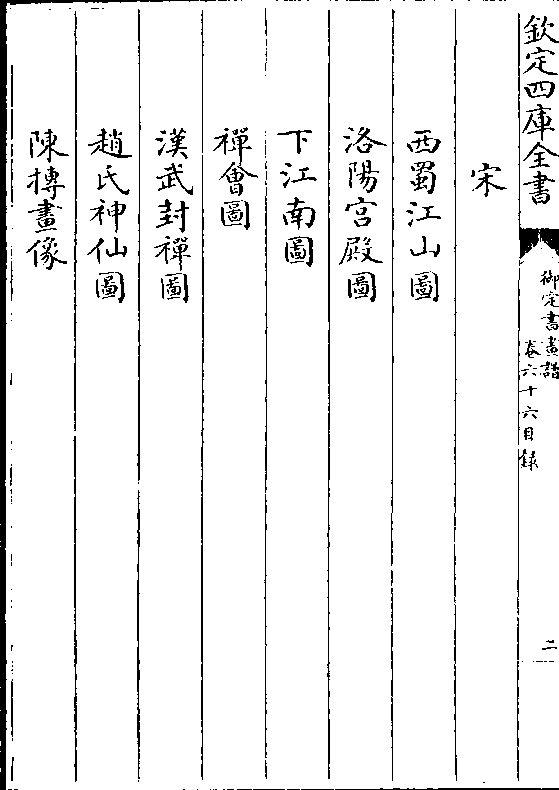 欽定四庫全書
御定書畫譜
卷六十六目錄
二
宋
西蜀江山圖
洛陽宫殿圖
下江南圖
禪會圖
漢武封禪圖
趙氏神仙圖
陳摶畫像